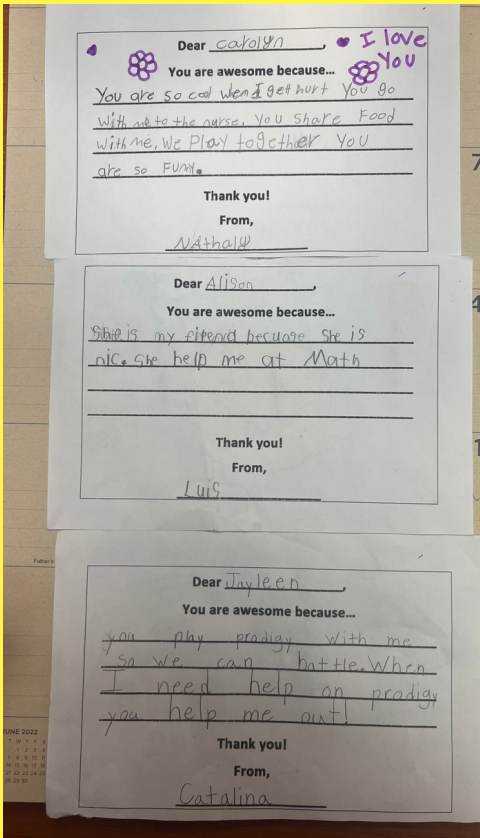 Dear carolyn, I love
You
You are awesome because...
You are so cool wen I get hurt You go
With me to the nurse. You share Food
With me, We Play together You
are so Funy.
Thank you!
From,
NAthaly
7
Dear Alison,
You are awesome because...
She is my firend becuase She is
nic. She help me at Math
Thank you!
From,
Luis
Father's
Dear Jayleen,
You are awesome because...
you play prodigy with me
so we can battle. When
I need help on prodigy
you help me out!
Thank you!
From,
Catalina
JUNE 2022
T W T F S
1 2 3 4
7 8 9 10 11
14 15 16 17 18
21 22 23 24 25
28 29 30